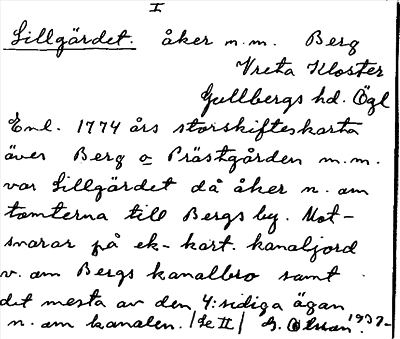 I
Lillgärdet. åker m.m. Berg
Vreta Kloster
Gullbergs hd. Ögl
Enl. 1774 års storskifteskarta
över Berg o Prästgården m.m.
var Lillgärdet då åker n. om
tomterna till Bergs by. Mot-
svarar på ek-kart. kanaljord
v. om Bergs kanalbro samt
det mesta av den 4:sidiga ägan
n. om kanalen. /Se II/ G. Olsson 1937.